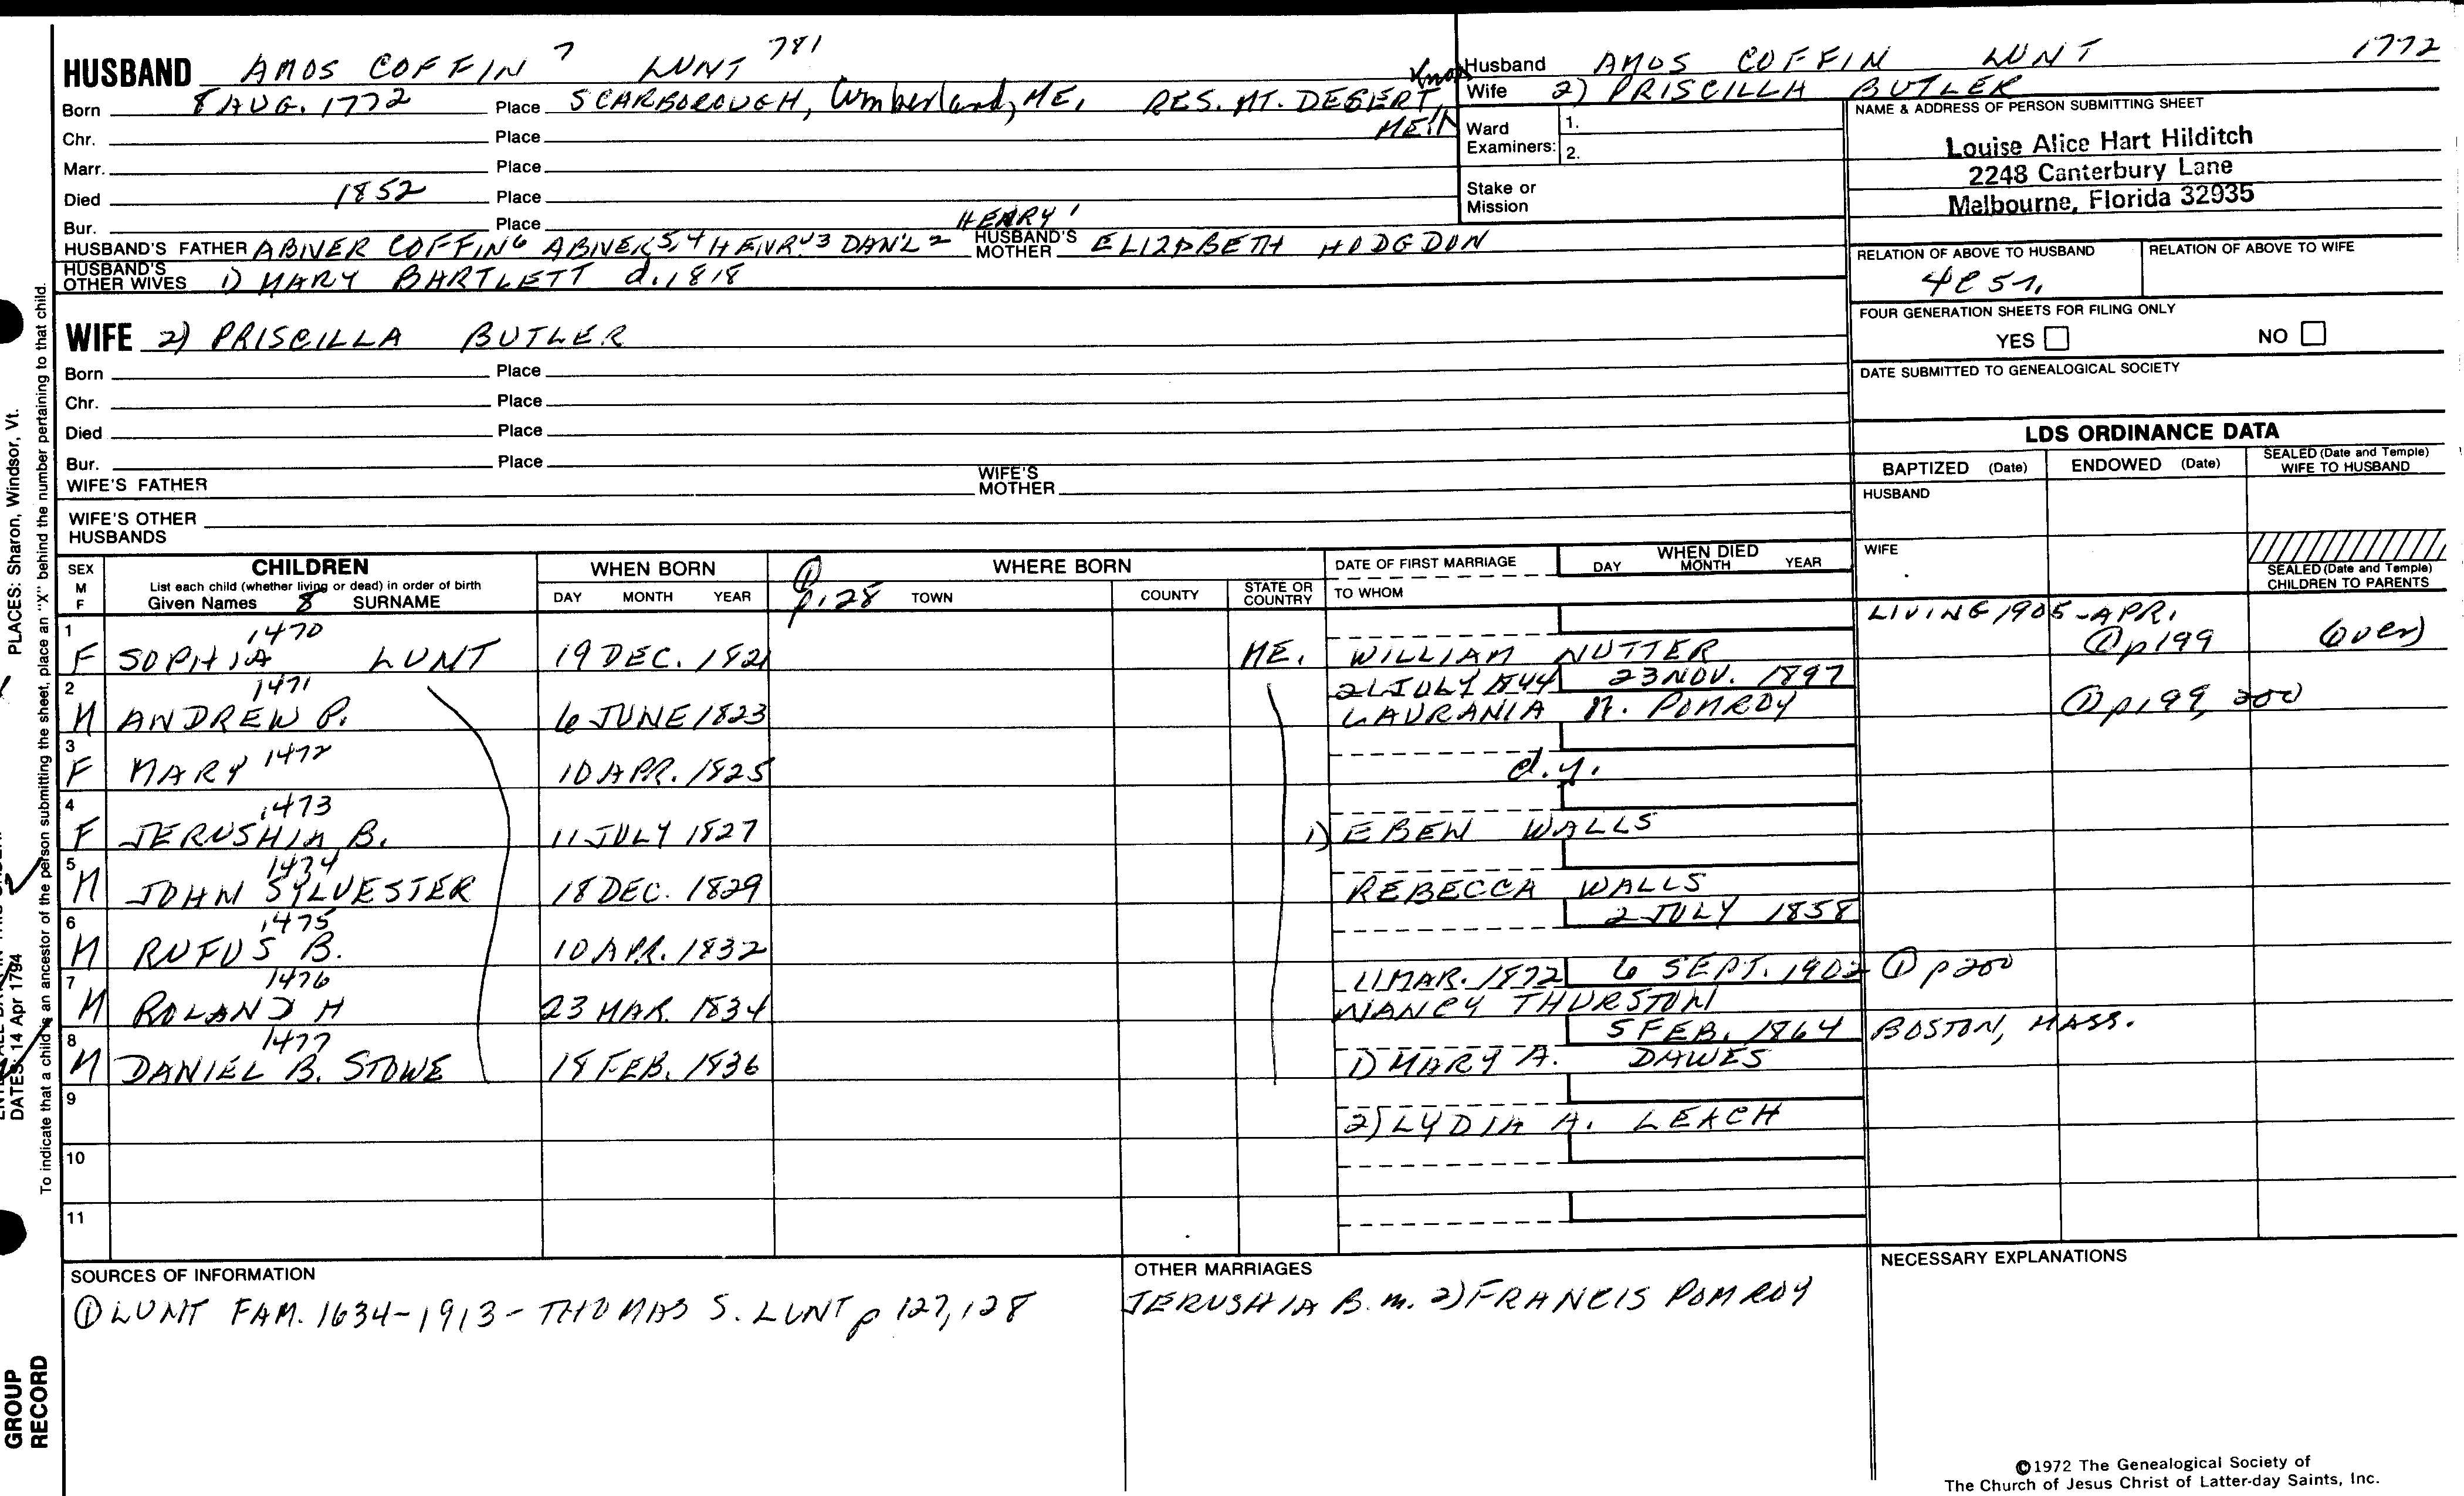 HUSBAND AMOS COFFIN 7 LUNT 781
Born 8 AUG. 1772 Place SCARBOROUGH, Cumberland, ME, RES. MT. DESERT, Knox
ME.
Chr. Place
Marr. Place
Died 1852 Place
Bur. Place
HUSBAND'S FATHER ABIVER COFFIN6 ABIVER5,4 HENRY3 DAN'L2 HENRY1 HUSBAND'S MOTHER ELIZABETH HODGDON
HUSBAND'S OTHER WIVES 1) MARY BARTLETT d. 1818
WIFE 2) PRISCILLA BUTLER
Born Place
Chr. Place
Died Place
Bur. Place
WIFE'S FATHER WIFE'S MOTHER
WIFE'S OTHER HUSBANDS
Husband AMOS COFFIN LUNT 1772
Wife 2) PRISCILLA BUTLER
Ward Examiners: 1.
2.
Stake or Mission
NAME & ADDRESS OF PERSON SUBMITTING SHEET
Louise Alice Hart Hilditch
2248 Canterbury Lane
Melbourne, Florida 32935
RELATION OF ABOVE TO HUSBAND RELATION OF ABOVE TO WIFE
4C5r.
FOUR GENERATION SHEETS FOR FILING ONLY
YES NO
DATE SUBMITTED TO GENEALOGICAL SOCIETY
LDS ORDINANCE DATA
BAPTIZED (Date) ENDOWED (Date) SEALED (Date and Temple) WIFE TO HUSBAND
HUSBAND
WIFE
SEALED (Date and Temple) CHILDREN TO PARENTS
SEX M F CHILDREN List each child (whether living or dead) in order of birth Given Names 8 SURNAME
WHEN BORN DAY MONTH YEAR
① p.128 WHERE BORN TOWN COUNTY STATE OR COUNTRY
DATE OF FIRST MARRIAGE TO WHOM
WHEN DIED DAY MONTH YEAR
1 1470 LIVING 1905-APR.
F SOPHIA LUNT 19 DEC. 1821 ME. WILLIAM NUTTER ① p199 (over)
2 1471 21 JULY 1844 23 NOV. 1897
M ANDREW P. 6 JUNE 1823 LAURANIA N. POMROY ① p.199, 200
3 1472
F MARY 10 APR. 1825 d.y.
4 1473
F JERUSHIA B. 11 JULY 1827 1) EBEN WALLS
5 1474
M JOHN SYLVESTER 18 DEC. 1829 REBECCA WALLS
6 1475 2 JULY 1858
M RUFUS B. 10 APR. 1832
7 1476 11 MAR. 1872 6 SEPT. 1902 ① p200
M ROLAND H 23 MAR. 1834 NANCY THURSTON
8 1477 5 FEB. 1864 BOSTON, MASS.
M DANIEL B. STOWE 18 FEB. 1836 1) MARY A. DAWES
9
2) LYDIA A. LEACH
10
11
SOURCES OF INFORMATION
① LUNT FAM. 1634-1913 - THOMAS S. LUNT p 127, 128
OTHER MARRIAGES
JERUSHIA B. m. 2) FRANCIS POMROY
NECESSARY EXPLANATIONS
©1972 The Genealogical Society of
The Church of Jesus Christ of Latter-day Saints, Inc.
To indicate that a child is an ancestor of the person submitting the sheet, place an "X" behind the number pertaining to that child.
PLACES: Sharon, Windsor, Vt.
DATES: 14 Apr 1794
GROUP
RECORD